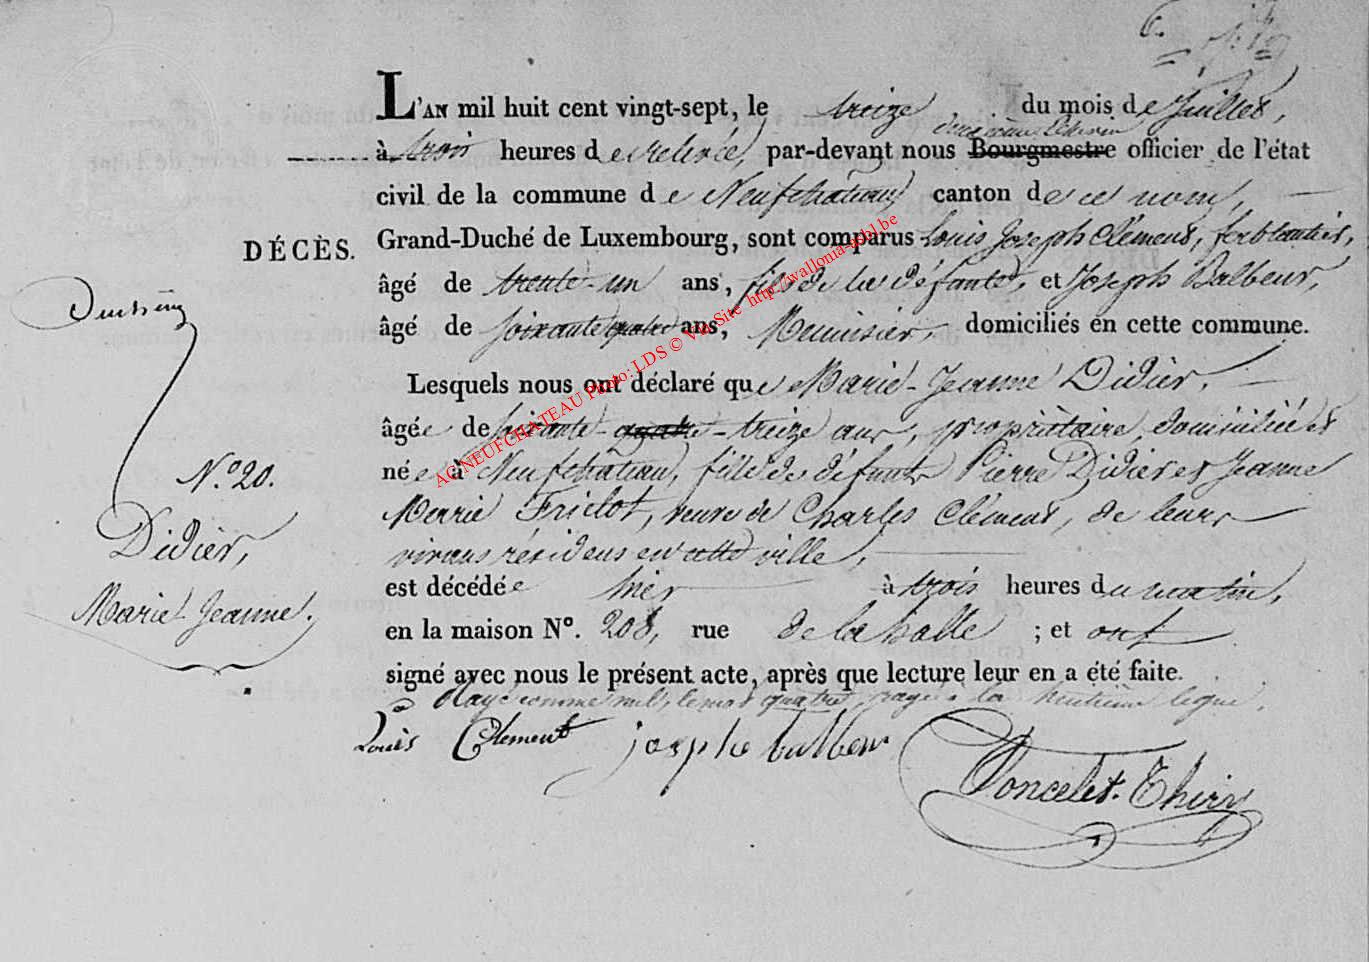 6.
L'AN mil huit cent vingt-sept, le treize du mois de Juillet,
à trois heures de relevée, par-devant nous Bourgmestre officier de l'état
civil de la commune de Neufchâteau canton de ce nom,
DÉCÈS.
Grand-Duché de Luxembourg, sont comparus Louis Joseph Clément, ferblantier,
âgé de trente-un ans, fils de la défunte, et Joseph Balbeur,
âgé de soixante quatre ans, Menuisier, domiciliés en cette commune.
Lesquels nous ont déclaré que Marie-Jeanne Didier,
âgée de soixante-quatre-treize ans, propriètaire, domiciliée et
née à Neufchâteau, fille de défunts Pierre Didier et Jeanne
Marie Frictot, veuve de Charles Clément, de leurs
vivans résidens en cette ville,
est décédée hier à trois heures du matin,
en la maison N°. 208, rue de la halle ; et ont
signé avec nous le présent acte, après que lecture leur en a été faite.
Rayé comme nul, le mot quatre, rayé à la huitième ligne.
Louis Clement josephe balbeur Poncelet-Thiry
N.° 20.
Didier,
Marie-Jeanne.
AC NEUFCHATEAU Photo: LDS © Via Site http://wallonia-asbl.be